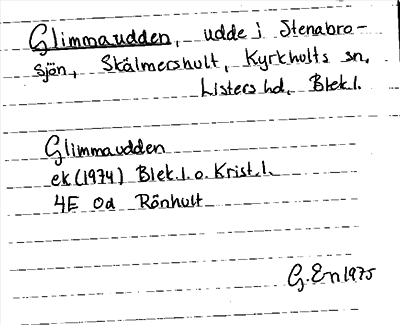 Glimmaudden, udde i Stenabro-
sjön, Skälmershult, Kyrkhults sn,
Listers hd, Blek.l.
Glimmaudden
ek (1974) Blek.l. o. Krist.l.
4E 0d Rönhult
G. En 1975